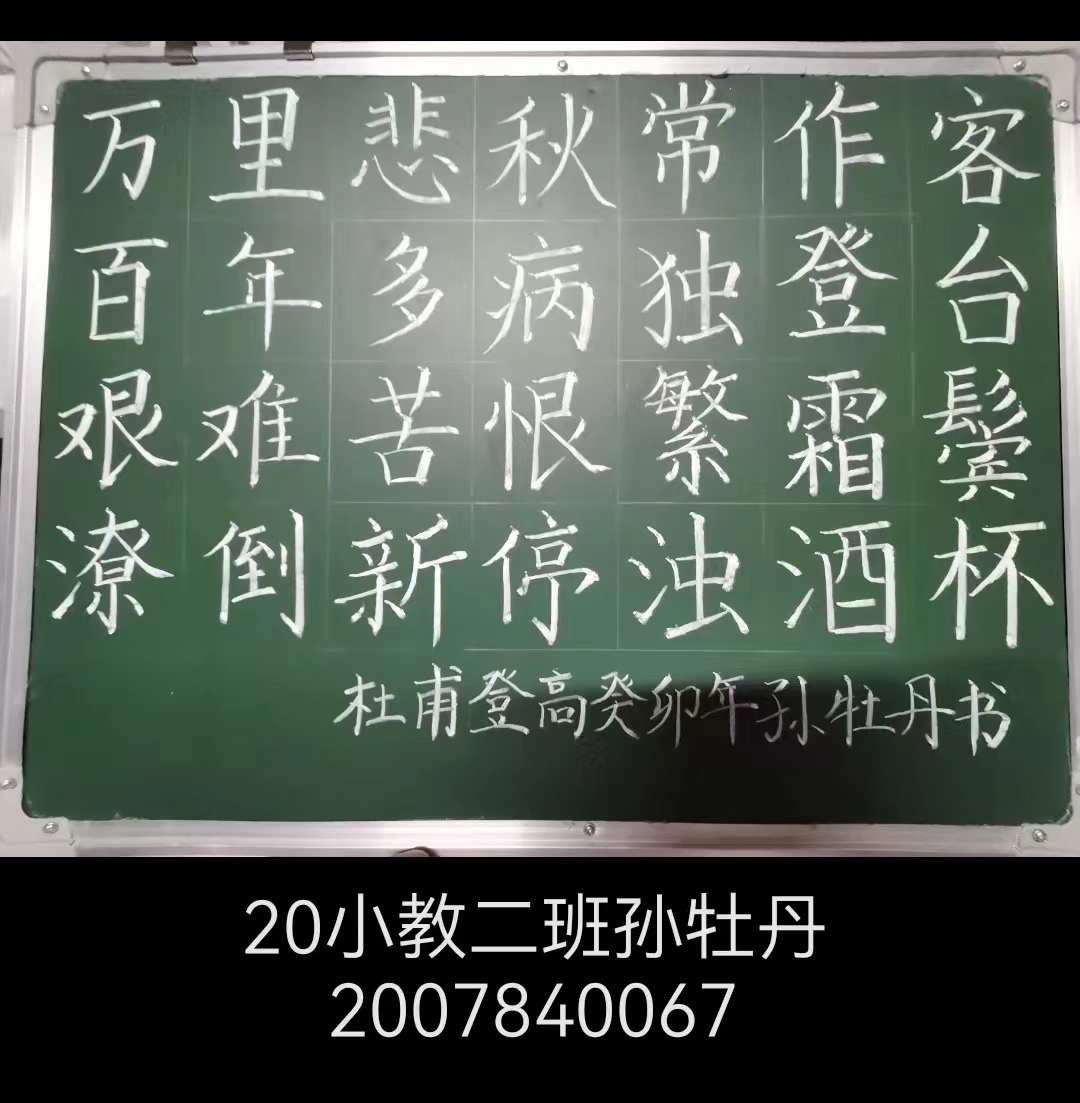 万里悲秋常作客
百年多病独登台
艰难苦恨繁霜鬓
潦倒新停浊酒杯
杜甫登高癸卯年孙牡丹书
20小教二班孙牡丹
2007840067